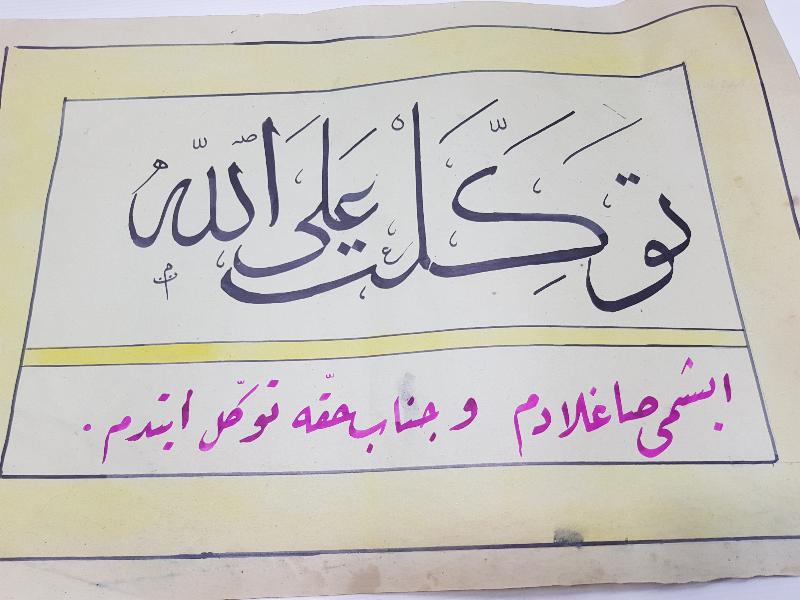 توكّلت على الله
ایشمی صاغلادم و جناب حقّه توكّل ایتدم.